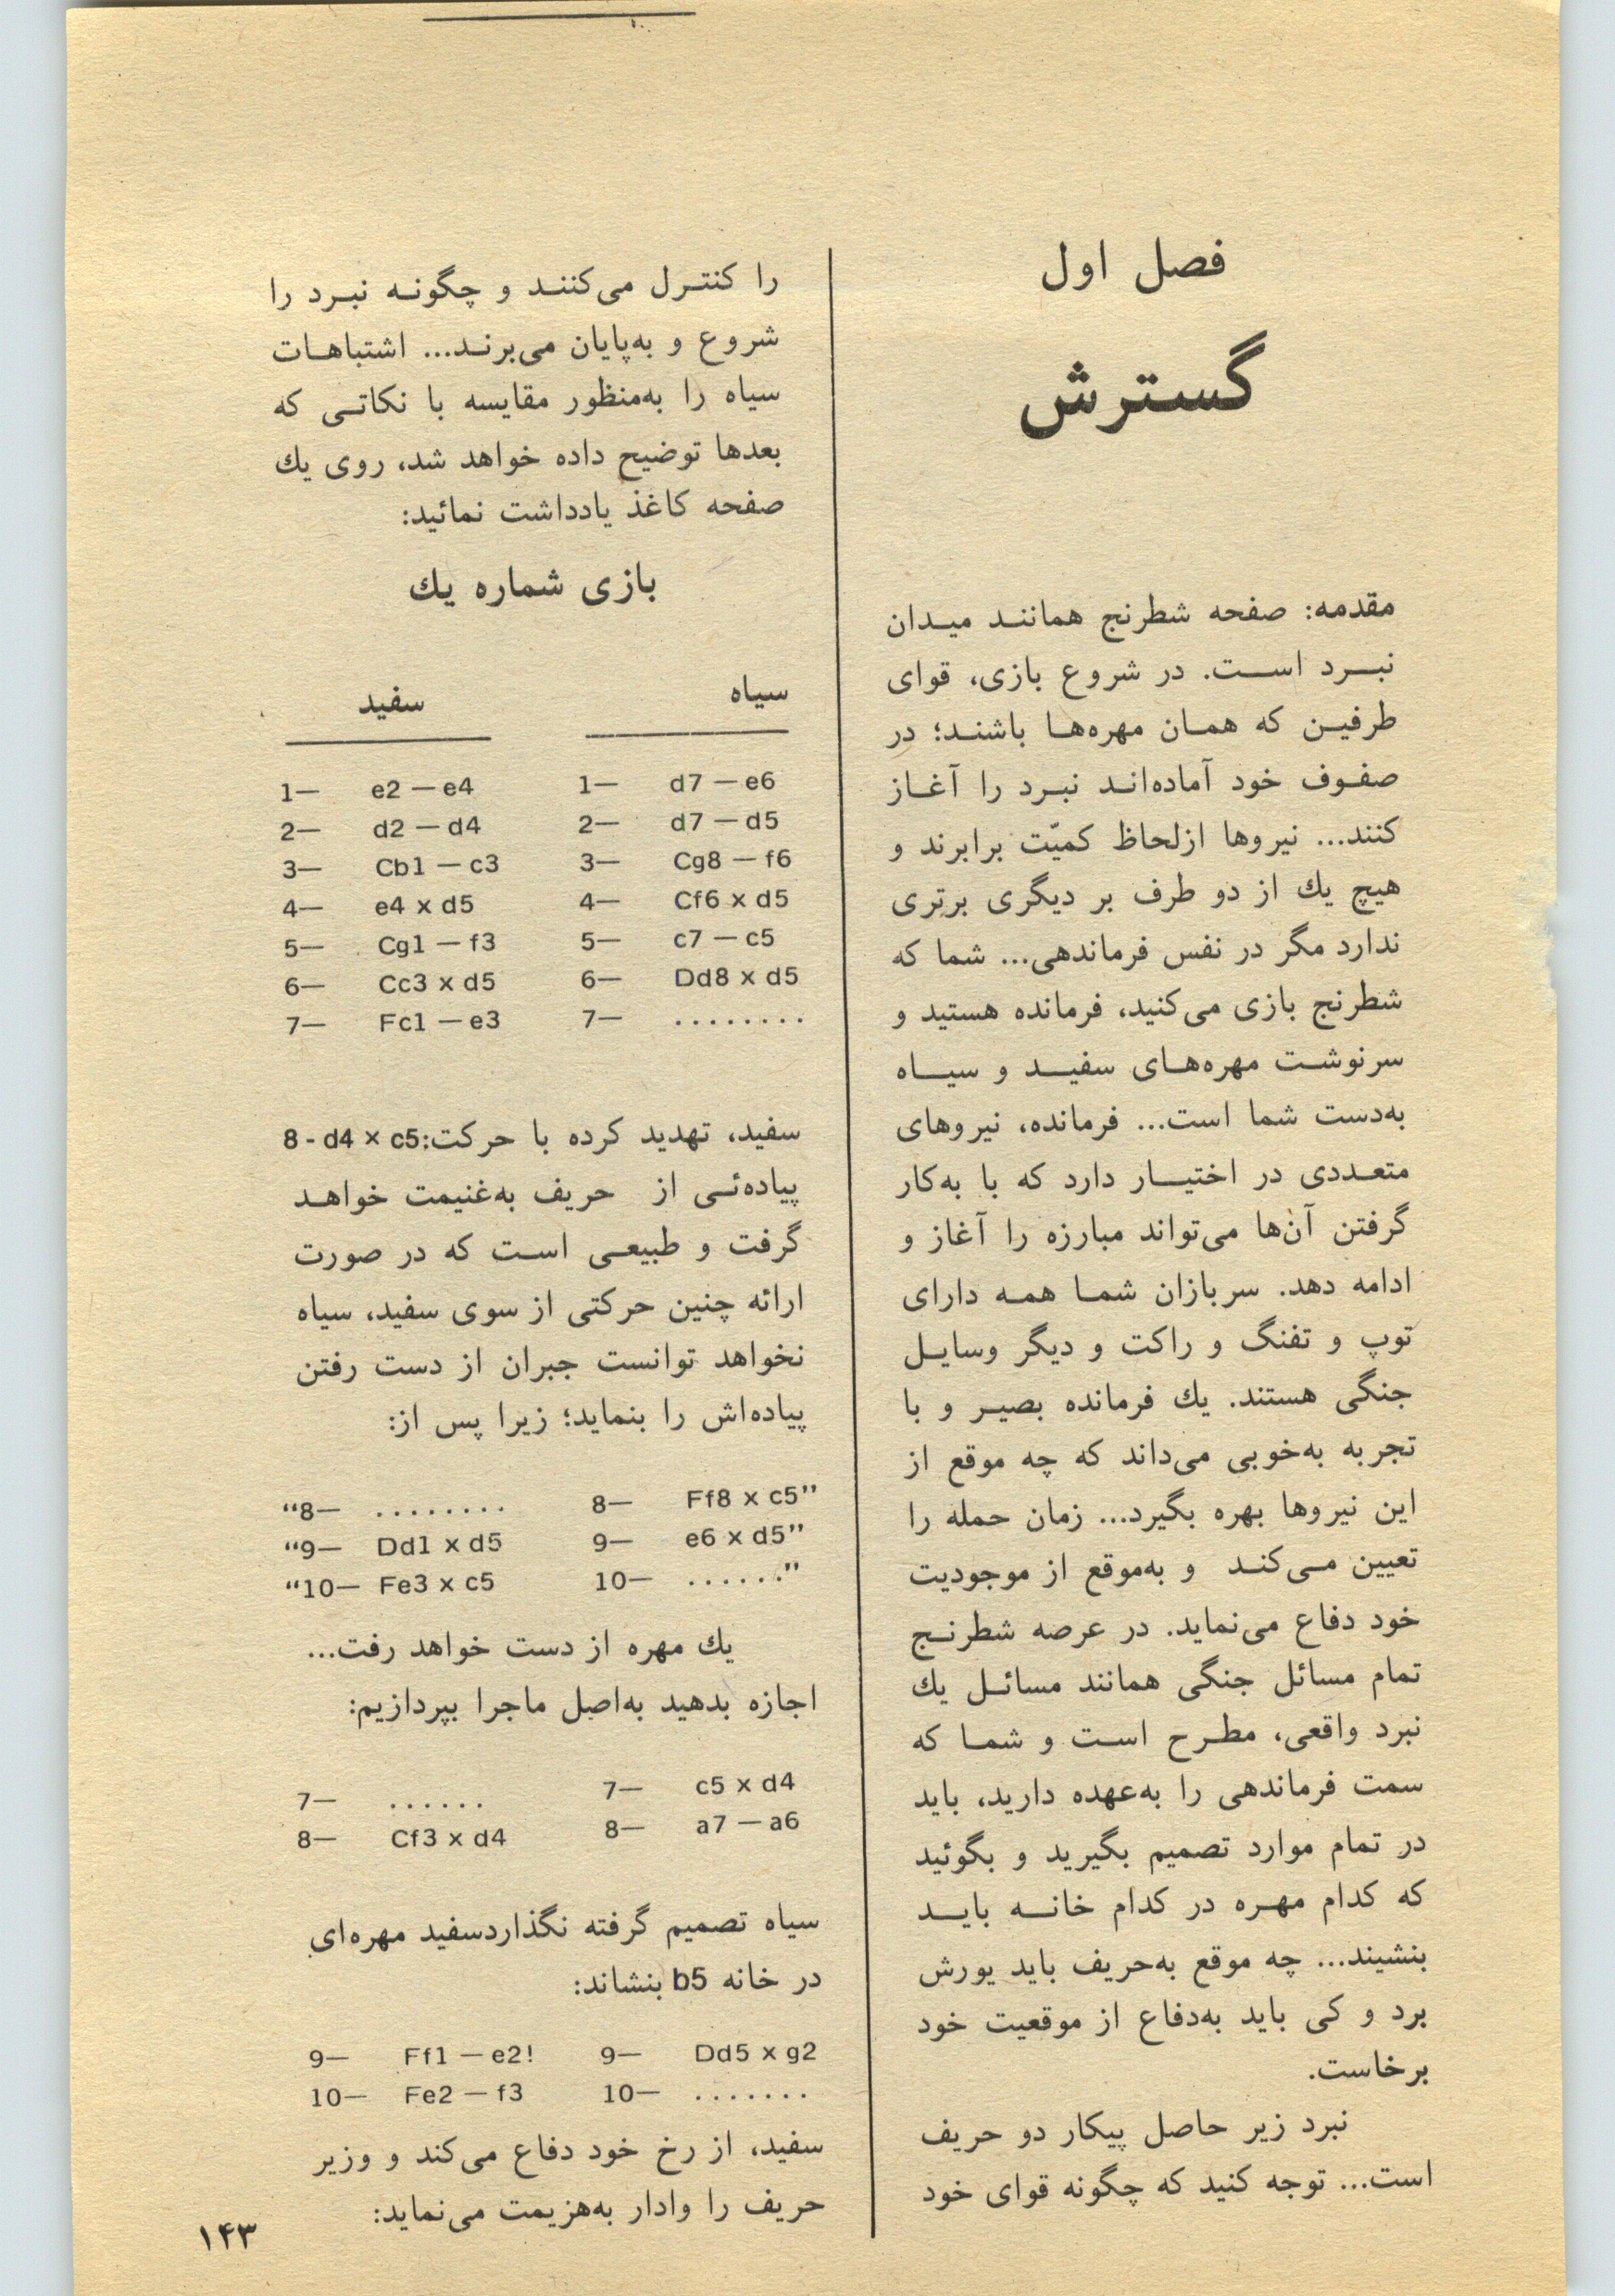 فصل اول
گسترش
مقدمه: صفحه شطرنج همانند میدان
نبرد است. در شروع بازی، قوای
طرفین که همان مهره‌ها باشند؛ در
صفوف خود آماده‌اند نبرد را آغاز
کنند... نیروها ازلحاظ کمیّت برابرند و
هیچ یك از دو طرف بر دیگری برتری
ندارد مگر در نفس فرماندهی... شما که
شطرنج بازی می‌کنید، فرمانده هستید و
سرنوشت مهره‌های سفید و سیاه
به‌دست شما است... فرمانده، نیروهای
متعددی در اختیار دارد که با به‌کار
گرفتن آن‌ها می‌تواند مبارزه را آغاز و
ادامه دهد. سربازان شما همه دارای
توپ و تفنگ و راکت و دیگر وسایل
جنگی هستند. یك فرمانده بصیر و با
تجربه به‌خوبی می‌داند که چه موقع از
این نیروها بهره بگیرد... زمان حمله را
تعیین می‌کند و به‌موقع از موجودیت
خود دفاع می‌نماید. در عرصه شطرنج
تمام مسائل جنگی همانند مسائل یك
نبرد واقعی، مطرح است و شما که
سمت فرماندهی را به‌عهده دارید، باید
در تمام موارد تصمیم بگیرید و بگوئید
که کدام مهره در کدام خانه باید
بنشیند... چه موقع به‌حریف باید یورش
برد و کی باید به‌دفاع از موقعیت خود
برخاست.
نبرد زیر حاصل پیکار دو حریف
است... توجه کنید که چگونه قوای خود
را کنترل می‌کنند و چگونه نبرد را
شروع و به‌پایان می‌برند... اشتباهات
سیاه را به‌منظور مقایسه با نکاتی که
بعدها توضیح داده خواهد شد، روی یك
صفحه کاغذ یادداشت نمائید:
بازی شماره یك
سیاه سفید
1— e2 — e4 1— d7 — e6
2— d2 — d4 2— d7 — d5
3— Cb1 — c3 3— Cg8 — f6
4— e4 x d5 4— Cf6 x d5
5— Cg1 — f3 5— c7 — c5
6— Cc3 x d5 6— Dd8 x d5
7— Fc1 — e3 7— ........
سفید، تهدید کرده با حرکت:8 - d4 × c5
پیاده‌ئی از حریف به‌غنیمت خواهد
گرفت و طبیعی است که در صورت
ارائه چنین حرکتی از سوی سفید، سیاه
نخواهد توانست جبران از دست رفتن
پیاده‌اش را بنماید؛ زیرا پس از:
“8— ........ 8— Ff8 x c5”
“9— Dd1 x d5 9— e6 x d5”
“10— Fe3 x c5 10— ......”
یك مهره از دست خواهد رفت...
اجازه بدهید به‌اصل ماجرا بپردازیم:
7— ...... 7— c5 x d4
8— Cf3 x d4 8— a7 — a6
سیاه تصمیم گرفته نگذاردسفید مهره‌ای
در خانه b5 بنشاند:
9— Ff1 — e2! 9— Dd5 x g2
10— Fe2 — f3 10— .......
سفید، از رخ خود دفاع می‌کند و وزیر
حریف را وادار به‌هزیمت می‌نماید:
۱۴۳